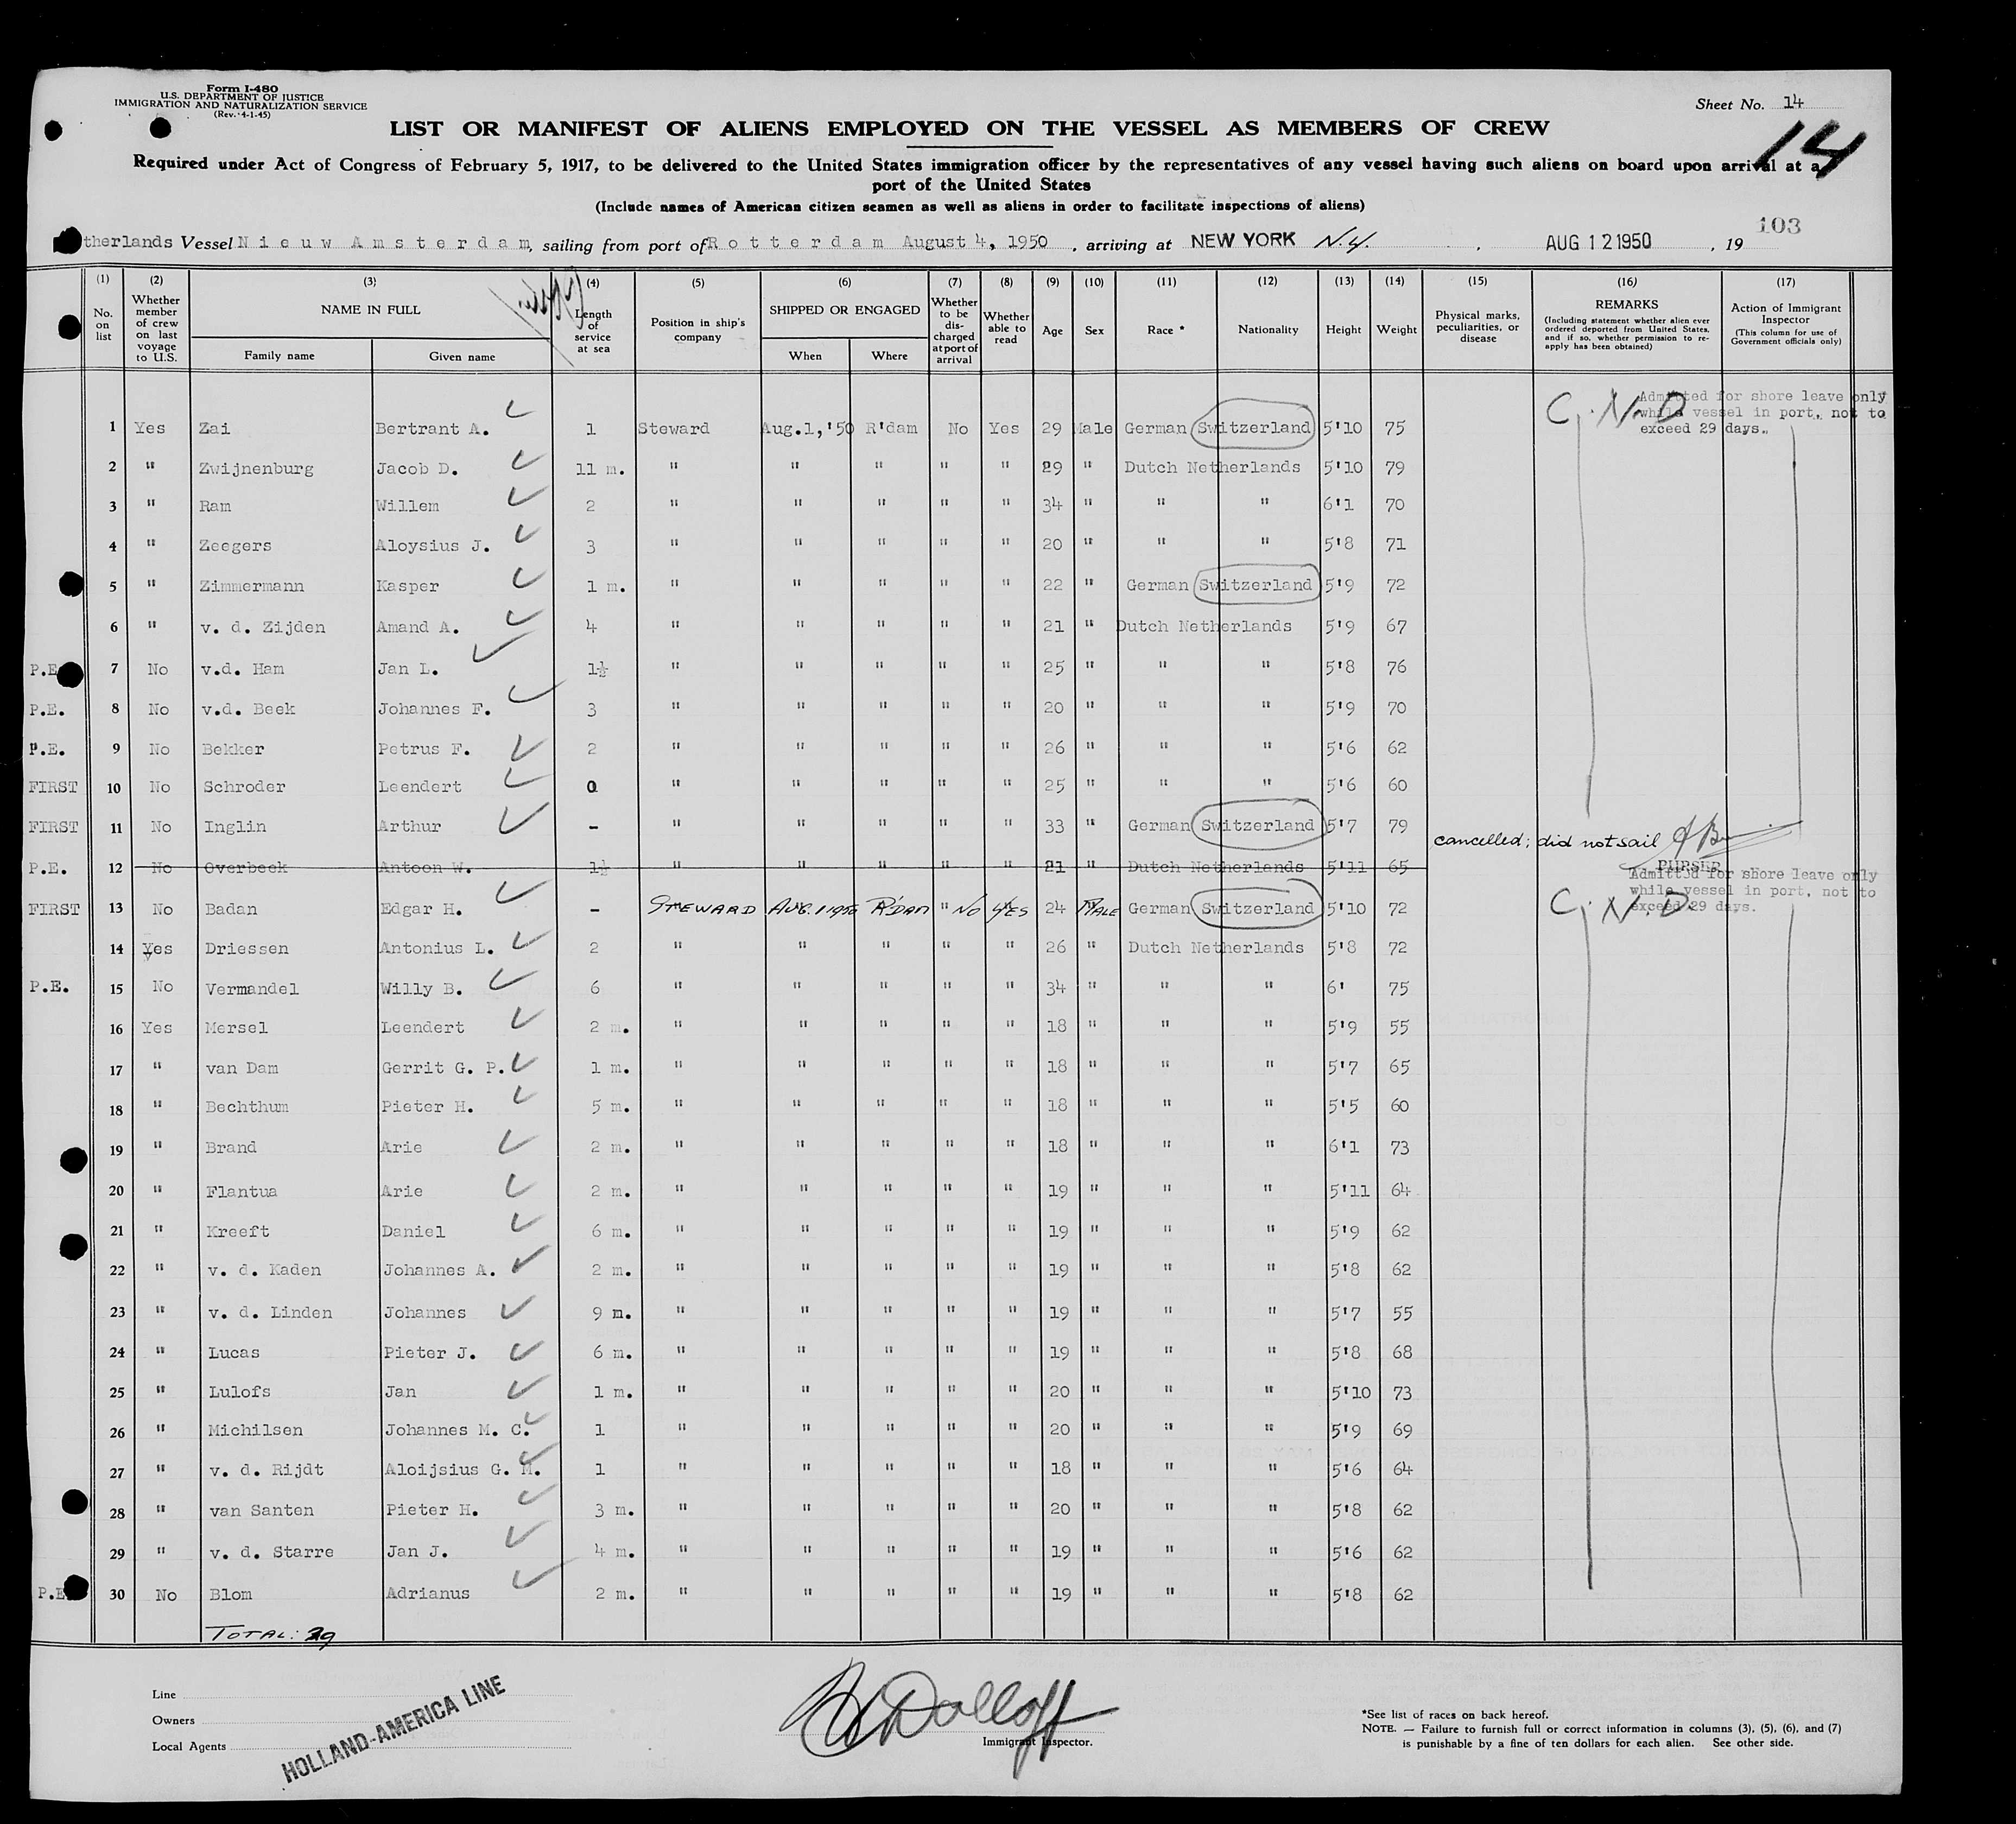 Form I-480
U.S. DEPARTMENT OF JUSTICE
IMMIGRATION AND NATURALIZATION SERVICE
(Rev. 4-1-45)
Sheet No. 14
14
LIST OR MANIFEST OF ALIENS EMPLOYED ON THE VESSEL AS MEMBERS OF CREW
Required under Act of Congress of February 5, 1917, to be delivered to the United States immigration officer by the representatives of any vessel having such aliens on board upon arrival at a
port of the United States
(Include names of American citizen seamen as well as aliens in order to facilitate inspections of aliens)
103
therlands Vessel Nieuw Amsterdam, sailing from port of Rotterdam August 4, 1950, arriving at NEW YORK N.Y., AUG 12 1950, 19
(1) (2) (3) (4) (5) (6) (7) (8) (9) (10) (11) (12) (13) (14) (15) (16) (17)
No. on list
Whether member of crew on last voyage to U.S.
NAME IN FULL
Family name Given name
Length of service at sea
Position in ship's company
SHIPPED OR ENGAGED
When Where
Whether to be discharged at port of arrival
Whether able to read
Age Sex Race * Nationality Height Weight
Physical marks, peculiarities, or disease
REMARKS
(Including statement whether alien ever ordered deported from United States, and if so, whether permission to reapply has been obtained)
Action of Immigrant Inspector
(This column for use of Government officials only)
C. N. D Admitted for shore leave only
while vessel in port, not to
exceed 29 days.
1 Yes Zai Bertrant A. 1 Steward Aug.1,'50 R'dam No Yes 29 Male German Switzerland 5'10 75
2 " Zwijnenburg Jacob D. 11 m. " " " " " 29 " Dutch Netherlands 5'10 79
3 " Ram Willem 2 " " " " " 34 " " " 6'1 70
4 " Zeegers Aloysius J. 3 " " " " " 20 " " " 5'8 71
5 " Zimmermann Kasper 1 m. " " " " " 22 " German Switzerland 5'9 72
6 " v. d. Zijden Amand A. 4 " " " " " 21 " Dutch Netherlands 5'9 67
P.E. 7 No v.d. Ham Jan L. 1½ " " " " " 25 " " " 5'8 76
P.E. 8 No v.d. Beek Johannes F. 3 " " " " " 20 " " " 5'9 70
P.E. 9 No Bekker Petrus F. 2 " " " " " 26 " " " 5'6 62
FIRST 10 No Schroder Leendert 0 " " " " " 25 " " " 5'6 60
FIRST 11 No Inglin Arthur - " " " " " 33 " German Switzerland 5'7 79
cancelled; did not sail
PURSER
P.E. 12 No Overbeek Antoon W. 1½ " " " " " 21 " Dutch Netherlands 5'11 65
Admitted for shore leave only
while vessel in port, not to
C. N. D. exceed 29 days.
FIRST 13 No Badan Edgar H. - STEWARD AUG. 1 1950 R'DAM " No YES 24 MALE German Switzerland 5'10 72
14 Yes Driessen Antonius L. 2 " " " " " 26 " Dutch Netherlands 5'8 72
P.E. 15 No Vermandel Willy B. 6 " " " " " 34 " " " 6' 75
16 Yes Mersel Leendert 2 m. " " " " " 18 " " " 5'9 55
17 " van Dam Gerrit G. P. 1 m. " " " " " 18 " " " 5'7 65
18 " Bechthum Pieter H. 5 m. " " " " " 18 " " " 5'5 60
19 " Brand Arie 2 m. " " " " " 18 " " " 6'1 73
20 " Flantua Arie 2 m. " " " " " 19 " " " 5'11 64
21 " Kreeft Daniel 6 m. " " " " " 19 " " " 5'9 62
22 " v. d. Kaden Johannes A. 2 m. " " " " " 19 " " " 5'8 62
23 " v. d. Linden Johannes 9 m. " " " " " 19 " " " 5'7 55
24 " Lucas Pieter J. 6 m. " " " " " 19 " " " 5'8 68
25 " Lulofs Jan 1 m. " " " " " 20 " " " 5'10 73
26 " Michilsen Johannes M. C. 1 " " " " " 20 " " " 5'9 69
27 " v. d. Rijdt Aloijsius G. M. 1 " " " " " 18 " " " 5'6 64
28 " van Santen Pieter H. 3 m. " " " " " 20 " " " 5'8 62
29 " v. d. Starre Jan J. 4 m. " " " " " 19 " " " 5'6 62
P.E. 30 No Blom Adrianus 2 m. " " " " " 19 " " " 5'8 62
TOTAL: 29
Line
Owners
Local Agents
HOLLAND-AMERICA LINE
Dolloff
Immigrant Inspector.
*See list of races on back hereof.
NOTE. — Failure to furnish full or correct information in columns (3), (5), (6), and (7)
is punishable by a fine of ten dollars for each alien. See other side.